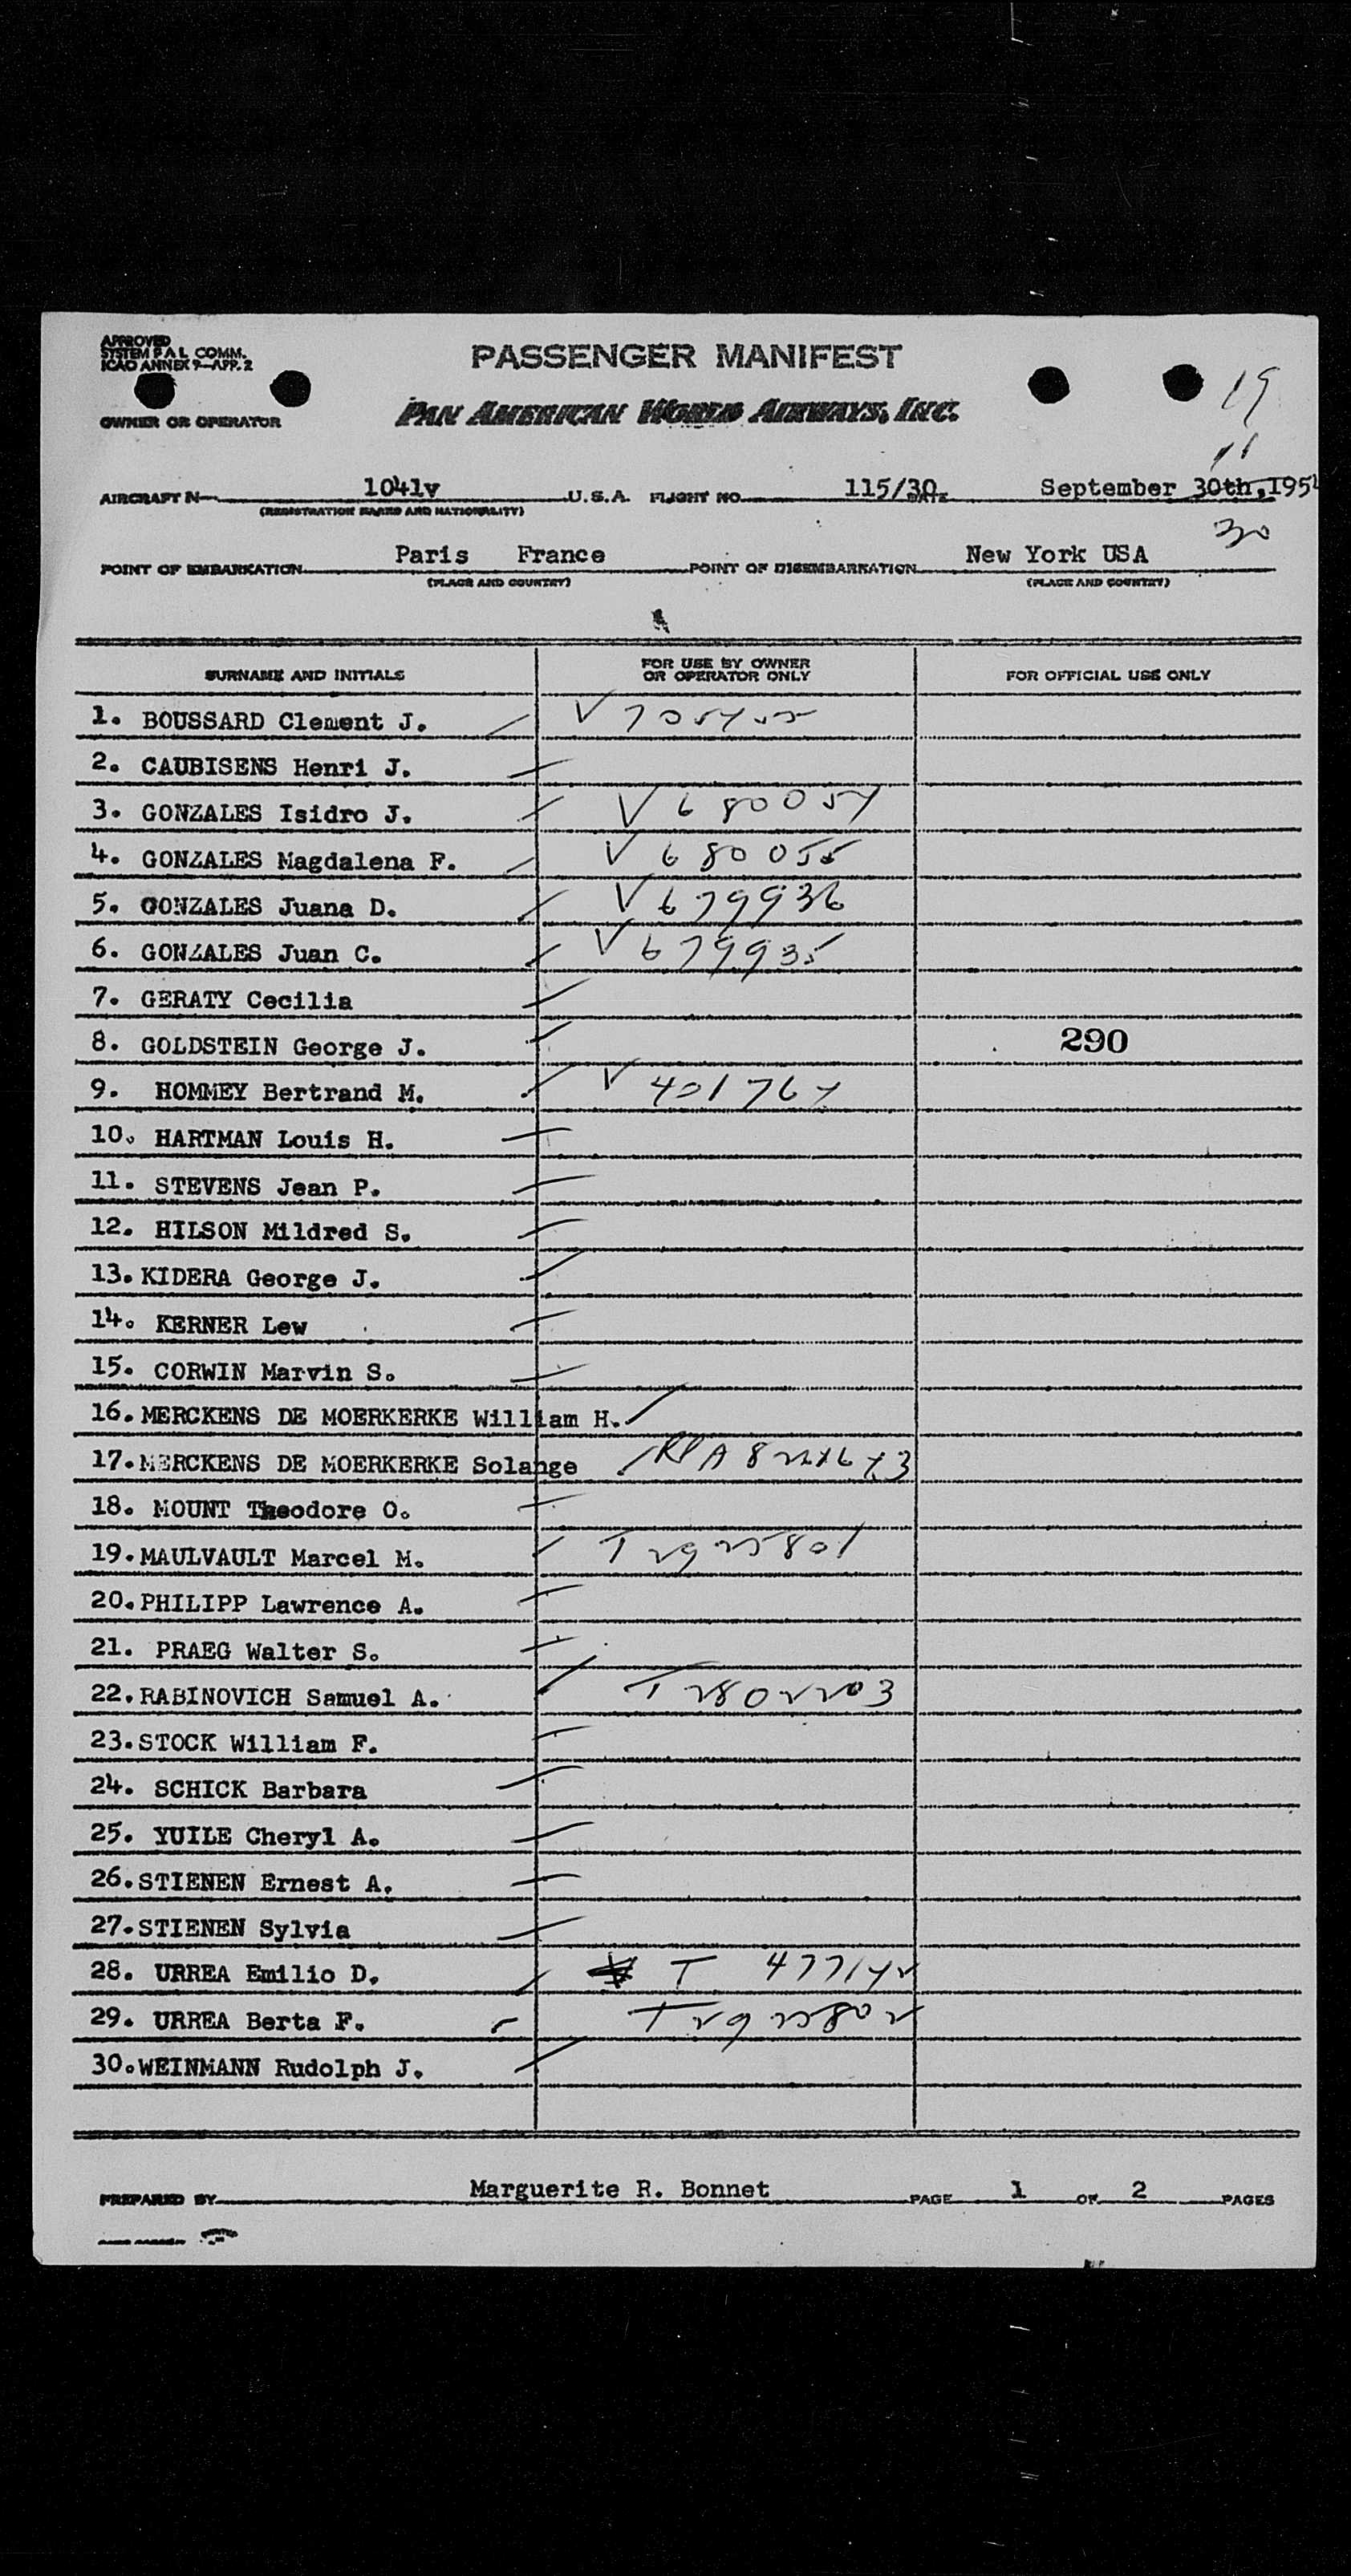 APPROVED
SYSTEM P A L COMM.
ICAO ANNEX 9-APP. 2
PASSENGER MANIFEST
OWNER OR OPERATOR
PAN AMERICAN WORLD AIRWAYS, INC.
19
11
30
AIRCRAFT N 1041v U.S.A. FLIGHT NO. 115/30 DATE September 30th, 195
(REGISTRATION MARKS AND NATIONALITY)
POINT OF EMBARKATION Paris France POINT OF DISEMBARKATION New York USA
(PLACE AND COUNTRY) (PLACE AND COUNTRY)
SURNAME AND INITIALS FOR USE BY OWNER OR OPERATOR ONLY FOR OFFICIAL USE ONLY
1. BOUSSARD Clement J.
2. CAUBISENS Henri J.
3. GONZALES Isidro J. V 680054
4. GONZALES Magdalena F. V 680055
5. GONZALES Juana D. V 679936
6. GONZALES Juan C. V 679935
7. GERATY Cecilia
8. GOLDSTEIN George J. 290
9. HOMMEY Bertrand M. V 401764
10. HARTMAN Louis H.
11. STEVENS Jean P.
12. HILSON Mildred S.
13. KIDERA George J.
14. KERNER Lew
15. CORWIN Marvin S.
16. MERCKENS DE MOERKERKE William H.
17. MERCKENS DE MOERKERKE Solange
18. MOUNT Theodore O.
19. MAULVAULT Marcel M. T 2925801
20. PHILIPP Lawrence A.
21. PRAEG Walter S.
22. RABINOVICH Samuel A. T 2802203
23. STOCK William F.
24. SCHICK Barbara
25. YUILE Cheryl A.
26. STIENEN Ernest A.
27. STIENEN Sylvia
28. URREA Emilio D. T 477142
29. URREA Berta F. T 2925802
30. WEINMANN Rudolph J.
PREPARED BY Marguerite R. Bonnet PAGE 1 OF 2 PAGES